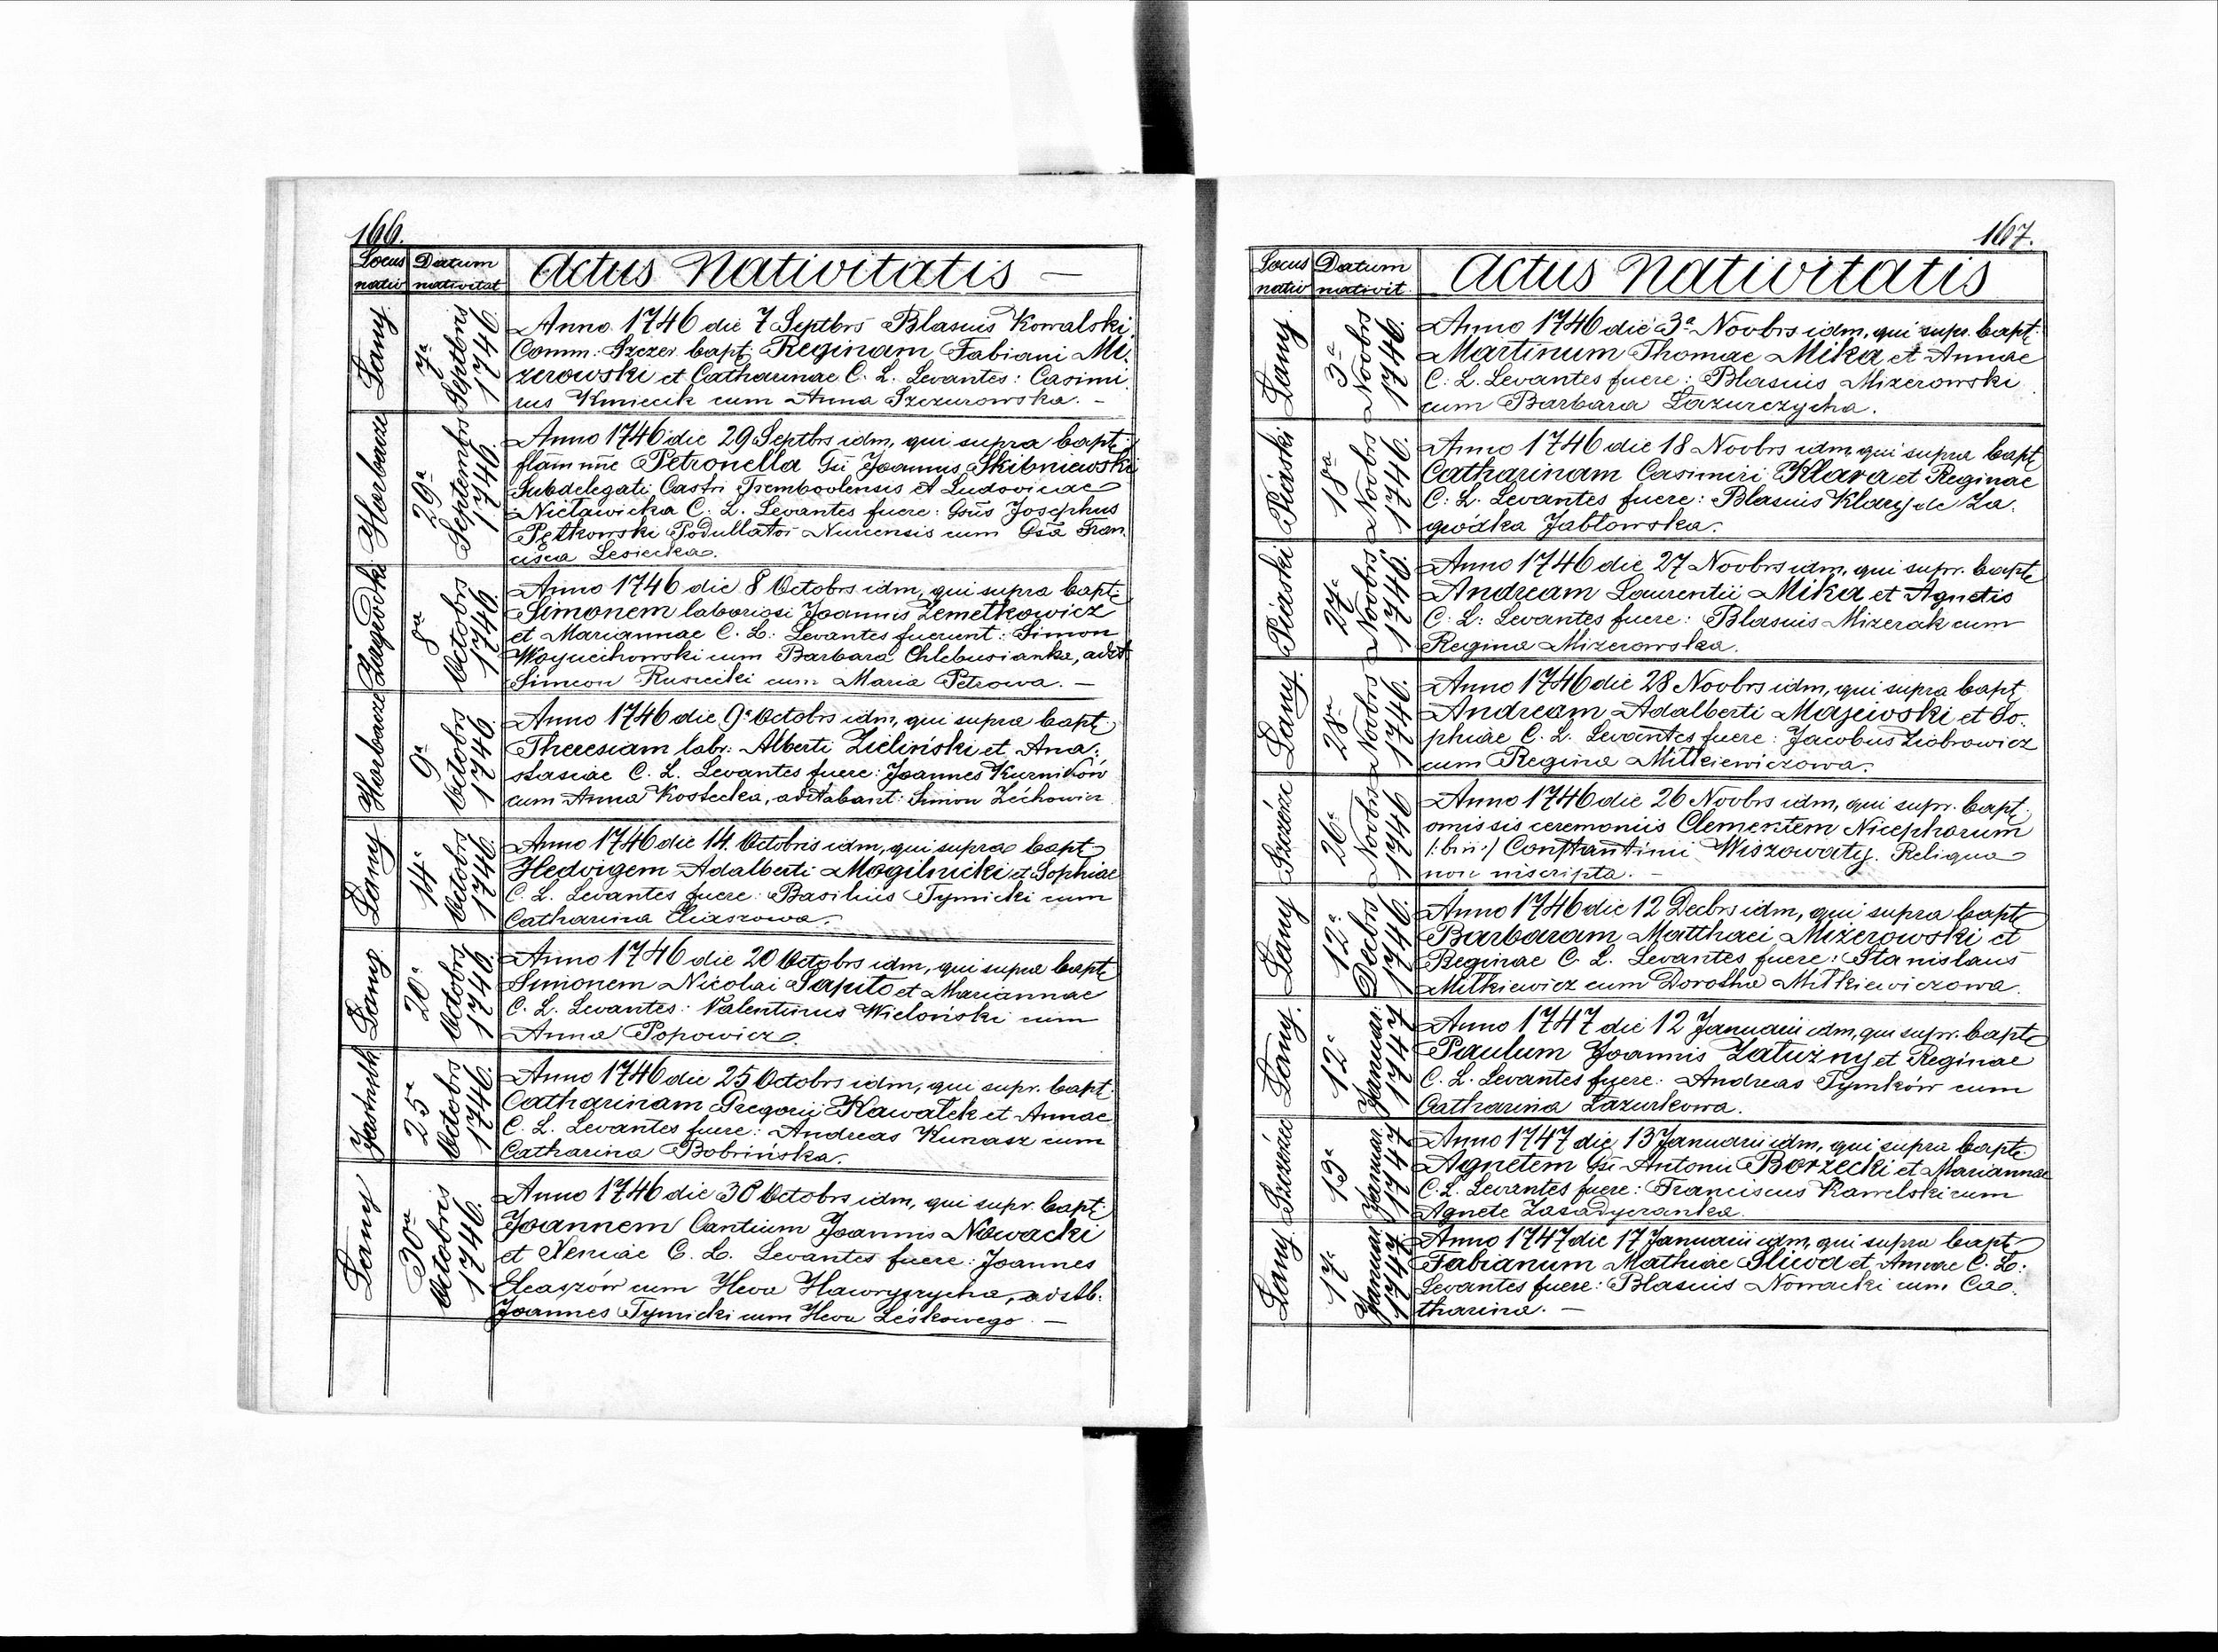 166.
Locus nativ
Datum nativitat
Actus Nativitatis —
Łany
7ª Septbris 1746.
Anno 1746 die 7 Septbrs Blasius Kowalski
Comm: Szczer. bapt. Reginam Fabiani Mi-
zerowski et Catharinae C. L. Levantes: Casimi
rus Kmiecik cum Anna Szczurowska. -
Horbacze
29ª Septembrs 1746.
Anno 1746 die 29 Septbrs idm, qui supra bapt.
Petronella Gsi Joannis Skibniewski
Subdelegati Castri Trembovlensis et Ludovicae
C. L. Levantes fuere: Gsus Josephus
Pętkowski cum Gsa Fran
cisca Lesiecka.
8ª Octobrs 1746.
Anno 1746 die 8 Octobrs idm, qui supra bapt.
Simonem laboriosi Joannis Zemełkowicz
et Mariannae C. L. Levantes fuerunt: Simon
Woyciechowski cum Barbara Chlebusianka, adst
Simeon Rusiecki cum Maria Petrowa. —
Horbacze
9ª Octobrs 1746.
Anno 1746 die 9ª Octobrs idm, qui supra bapt.
Theresiam labr: Alberti Zieliński et Ana-
stasiae C. L. Levantes fuere: Joannes Kurników
cum Anna Kostecka, adstabant: Simon Zéchowicz
Łany
14ª Octobrs 1746.
Anno 1746 die 14. Octobris idm, qui supra bapt.
Hedvigem Adalberti Mogilnicki et Sophiae
C. L. Levantes fuere: Basilius Tymicki cum
Catharina Eliaszowa.
Łany
20ª Octobrs 1746.
Anno 1746 die 20 Octobrs idm, qui supra bapt.
Simonem Nicolai Sapito et Mariannae
C. L. Levantes: Valentinus Wieloński cum
Anna Popowicz.
25ª Octobrs 1746.
Anno 1746 die 25 Octobrs idm, qui supr. bapt.
Catharinam Gregorii Kawałek et Annae
C. L. Levantes fuere: Andreas Kunasz cum
Catharina Bobrińska.
Łany
30ª Octobris 1746.
Anno 1746 die 30 Octobrs idm, qui supr. bapt.
Joannem Cantium Joannis Nowacki
et Xeniae C. L. Levantes fuere: Joannes
Eleaszów cum Heva Hawryszycha, adstb.
Joannes Tymicki cum Heva Leśkowego. —
167.
Locus nativ
Datum nativit.
Actus Nativitatis
Łany
3ª Novbrs 1746.
Anno 1746 die 3ª Novbrs idm, qui supr. bapt.
Martinum Thomae Mika et Annae
C. L. Levantes fuere: Blasius Mizerowski
cum Barbara Łazurczycha.
Piaski
18ª Novbrs 1746.
Anno 1746 die 18 Novbrs idm, qui supra bapt.
Catharinam Casimiri Klara et Reginae
C. L. Levantes fuere: Blasius Klary de Za-
gwózka Jabłowska.
Piaski
27ª Novbrs 1746.
Anno 1746 die 27 Novbrs idm, qui supr. bapt.
Andream Laurentii Mika et Agnetis
C. L. Levantes fuere: Blasius Mizerak cum
Regina Mizerowska.
Łany
28ª Novbrs 1746.
Anno 1746 die 28 Novbrs idm, qui supra bapt.
Andream Adalberti Majewski et So-
phiae C. L. Levantes fuere: Jacobus Ziobrowicz
cum Regina Mitkiewiczowa.
26ª Novbrs 1746
Anno 1746 die 26 Novbrs idm, qui supr. bapt.
omissis ceremoniis Clementem Nicephorum
/:bin:/ Constantini Wiszowaty. Reliqua
non inscripta. -
Łany
12ª Decbrs 1746.
Anno 1746 die 12 Decbrs idm, qui supra bapt.
Barbaram Matthaei Mizerowski et
Reginae C. L. Levantes fuere: Stanislaus
Mitkiewicz cum Dorothea Mitkiewiczowa.
Łany.
12ª Januar. 1747
Anno 1747 die 12 Januarii idm, qui supr. bapt.
Paulum Joannis Załużny et Reginae
C. L. Levantes fuere: Andreas Tymków cum
Catharina Łazurkowa.
13ª Januar. 1747
Anno 1747 die 13 Januarii idm, qui supra bapt.
Agnetem Gsi Antonii Borzecki et Mariannae
C. L. Levantes fuere: Franciscus Rawelski cum
Agnete Zasadycranka.
Łany
17ª Januar. 1747
Anno 1747 die 17 Januarii idm, qui supra bapt.
Fabianum Mathiae Sliwa et Annae C. L.
Levantes fuere: Blasius Nowacki cum Ca-
tharina. —